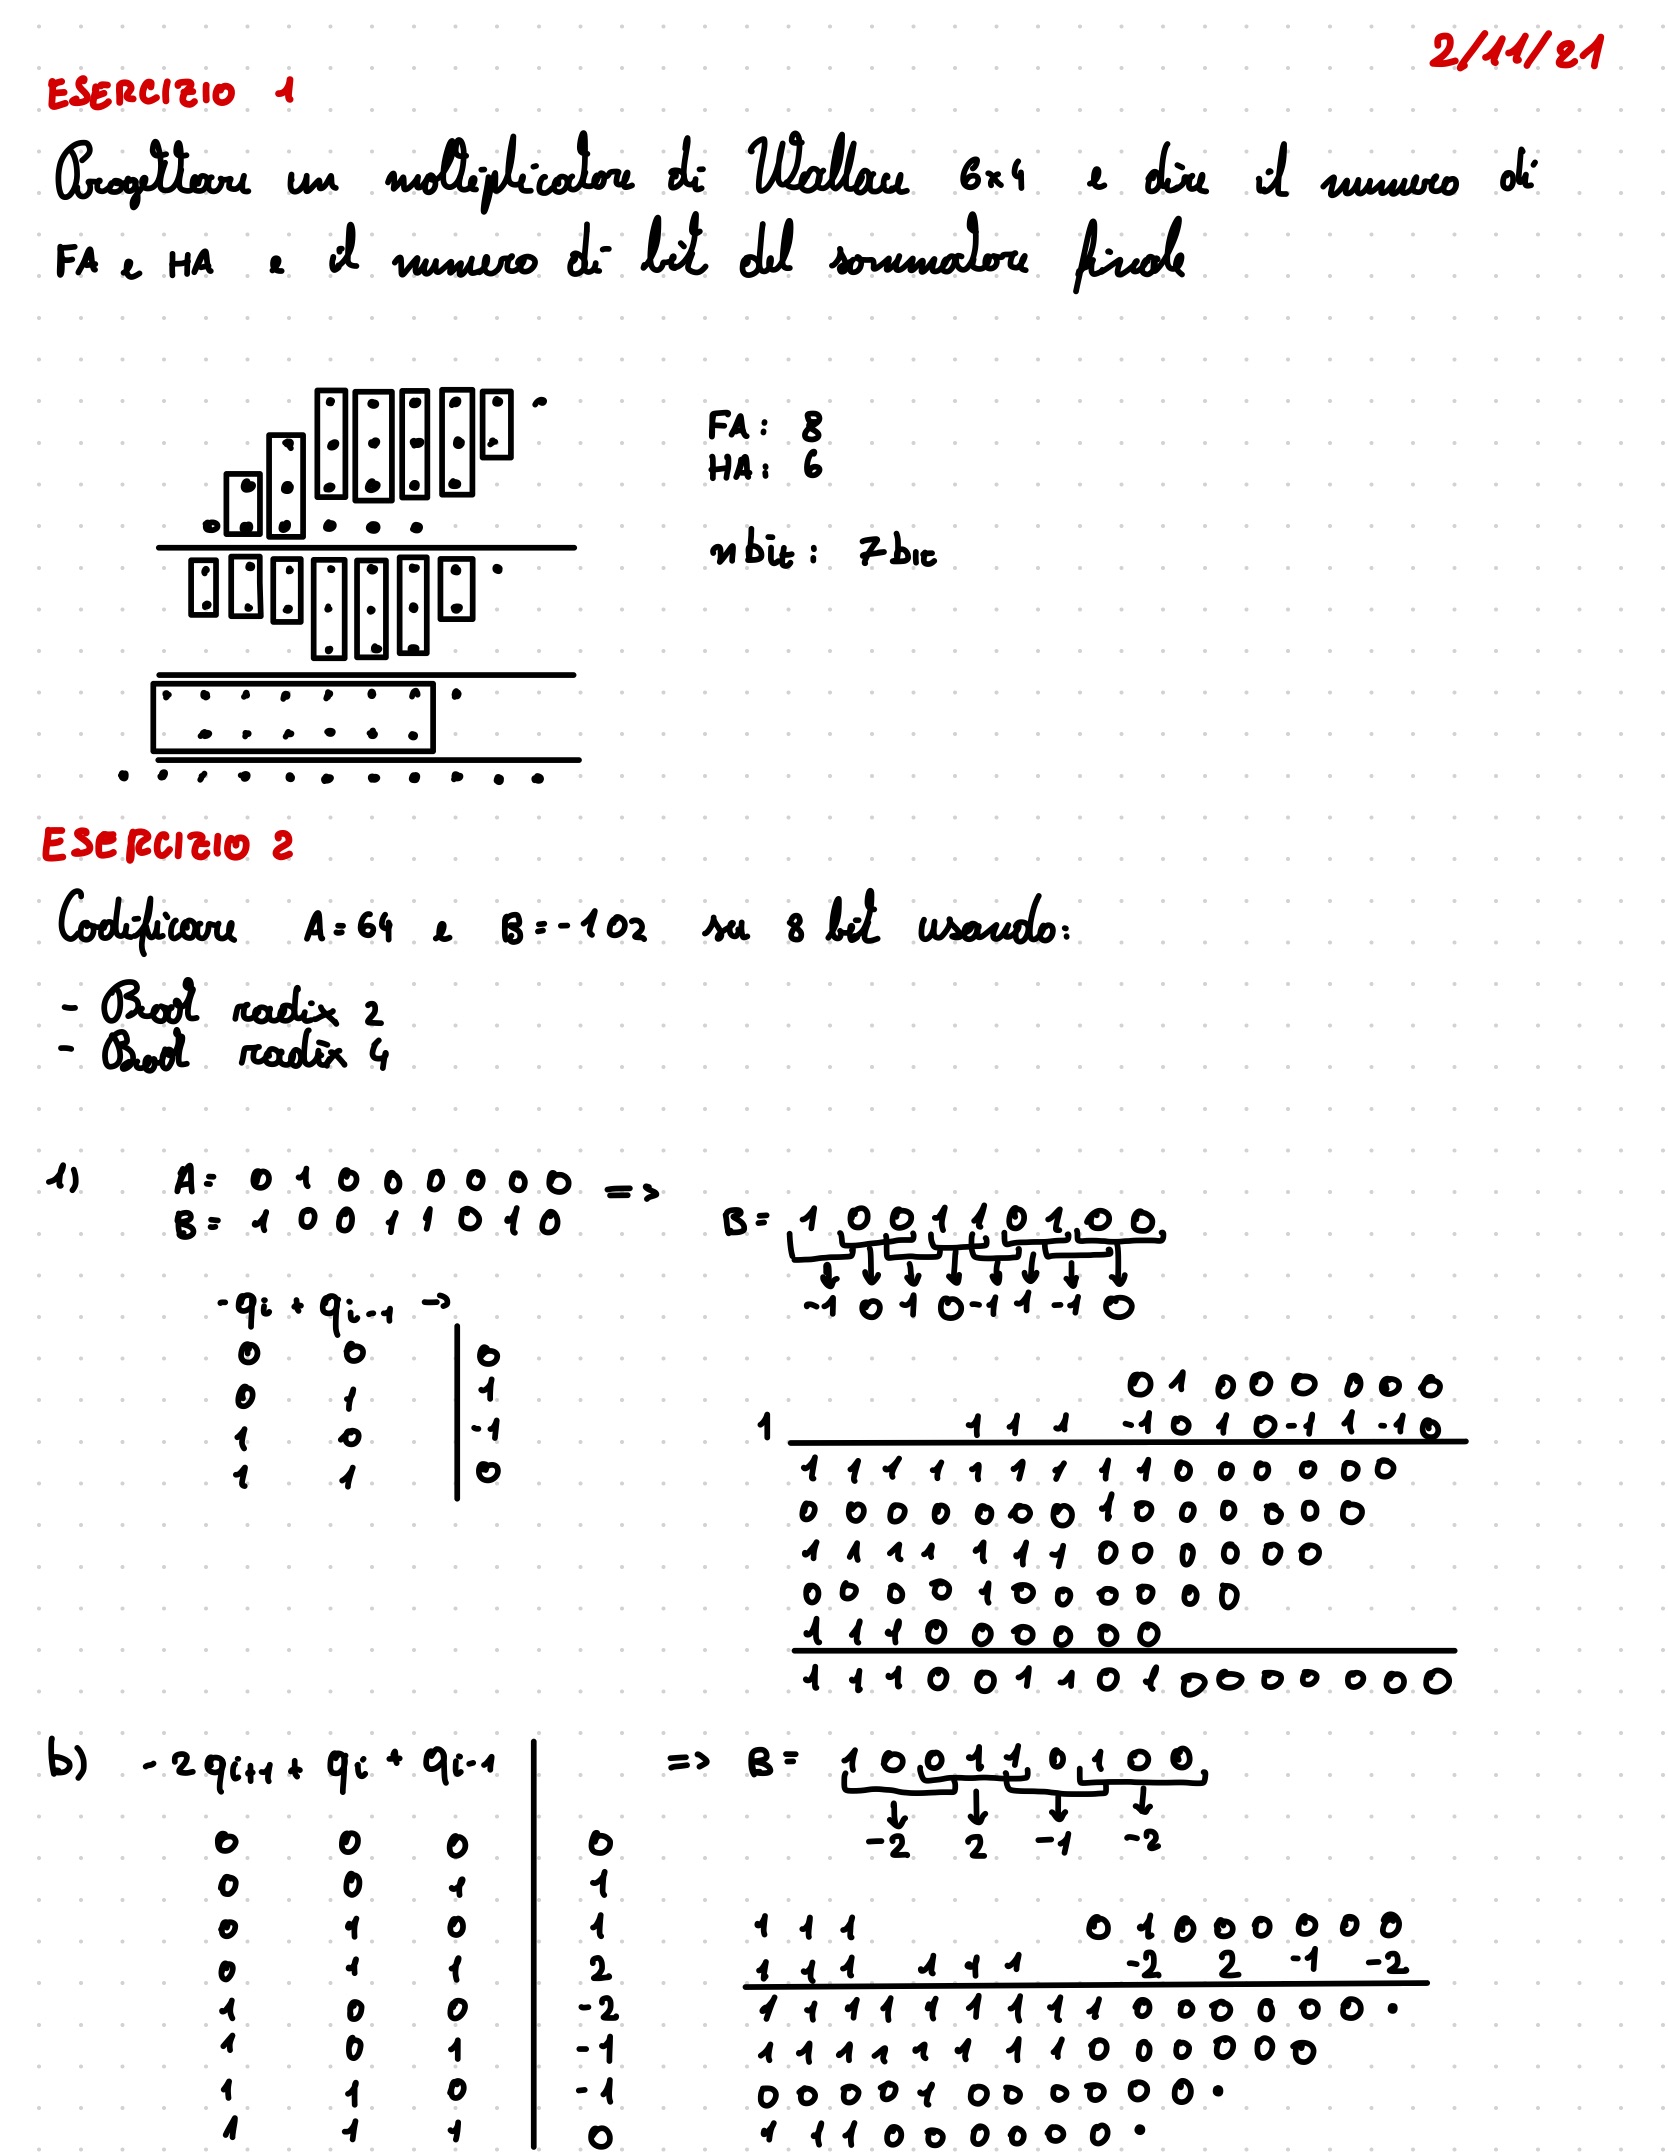 2/11/21
ESERCIZIO 1
Progettare un moltiplicatore di Wallace 6x4 e dire il numero di
FA e HA e il numero di bit del sommatore finale
FA: 8
HA: 6
nbit: 7bit
ESERCIZIO 2
Codificare A=64 e B=-102 su 8 bit usando:
- Boot radix 2
- Boot radix 4
1) A= 0 1 0 0 0 0 0 0 =>
B= 1 0 0 1 1 0 1 0
B= 1 0 0 1 1 0 1 0 0
-1 0 1 0 -1 1 -1 0
-qi + qi-1 ->
0 0 0
0 1 1
1 0 -1
1 1 0
0 1 0 0 0 0 0 0
1 1 1 1 -1 0 1 0 -1 1 -1 0
1 1 1 1 1 1 1 1 1 0 0 0 0 0 0
0 0 0 0 0 0 0 1 0 0 0 0 0 0
1 1 1 1 1 1 1 0 0 0 0 0 0
0 0 0 0 1 0 0 0 0 0 0
1 1 1 0 0 0 0 0 0
1 1 1 0 0 1 1 0 1 0 0 0 0 0 0 0
b) -2qi+1 + qi + qi-1 => B= 1 0 0 1 1 0 1 0 0
-2 2 -1 -2
0 0 0 0
0 0 1 1
0 1 0 1
0 1 1 2
1 0 0 -2
1 0 1 -1
1 1 0 -1
1 1 1 0
1 1 1 0 1 0 0 0 0 0 0
1 1 1 1 1 1 -2 2 -1 -2
1 1 1 1 1 1 1 1 1 0 0 0 0 0 0 .
1 1 1 1 1 1 1 1 0 0 0 0 0 0
0 0 0 0 1 0 0 0 0 0 0 .
1 1 1 0 0 0 0 0 0 .